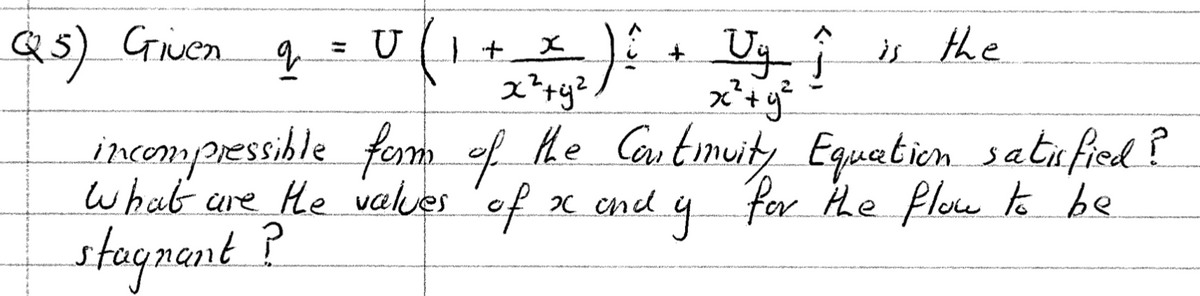 Q5) Given q = U (1 + x/(x²+y²)) î + Uy/(x²+y²) ĵ is the
incompressible form of the Continuity Equation satisfied?
What are the values of x and y for the flow to be
stagnant?